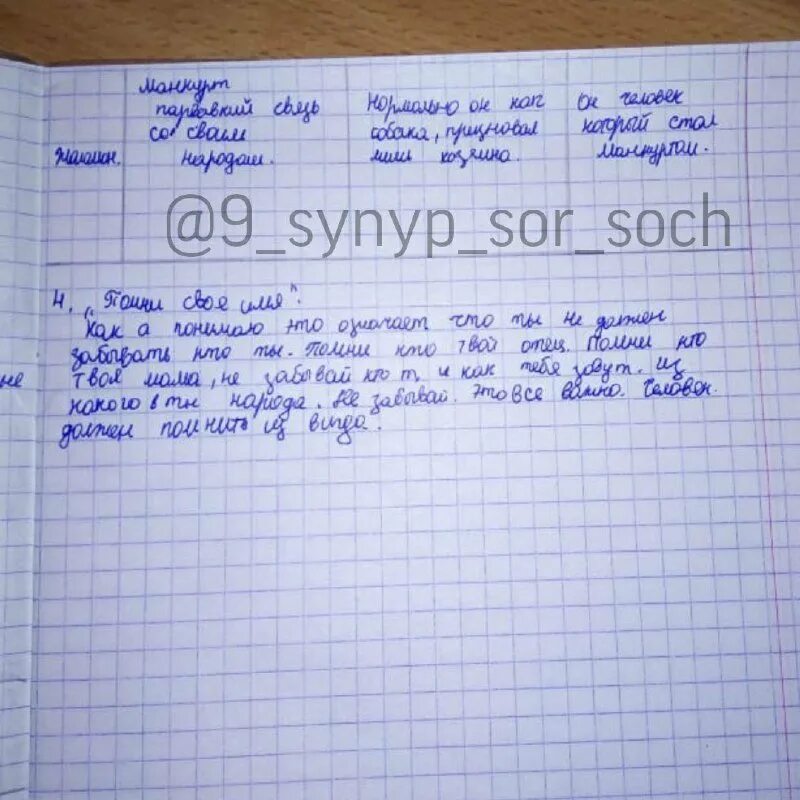 манкурт
парвавкий связь Нормально он как он человек
со сваим собака, признавал который стал
Жоламан. народам. лишь хозяина. манкуртам.
@9_synyp_sor_soch
4, „Помни свое имя".
Как а понимаю это означает что ты не должен
забывать кто ты. Помни кто твой отец. Помни кто
твоя мама, не забывай кто т, и как тебя зовут. из
не
какого в ты народа. Не забывай. Это все важно. Человек.
должен помнить из вида.